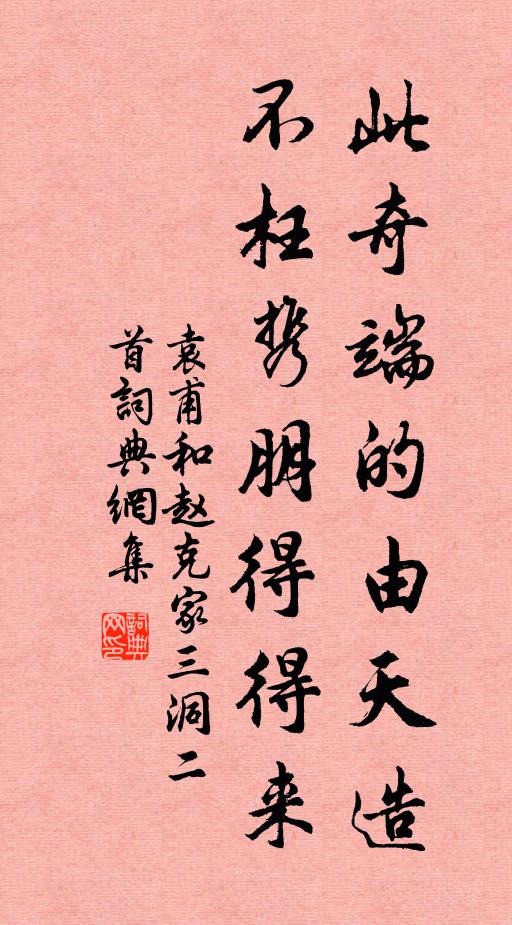 此奇端的由天造
不枉携朋得得来
袁甫和赵克家三洞二
首詞典網集
詞典网印